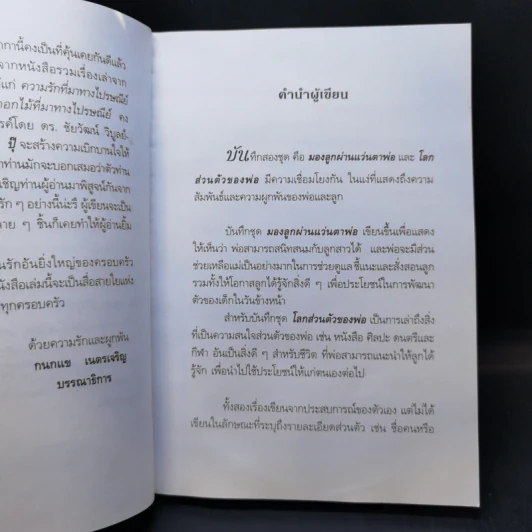 กานี้คงเป็นที่คุ้นเคยกันดีแล้ว
จากหนังสือรวมเรื่องเล่าจาก
แก่ ความรักที่มาทางไปรษณีย์
ดอกไม้ที่มาทางไปรษณีย์ คง
รค์โดย ดร. ชัยวัฒน์ วิบูลย์-
ปุ๊ จะสร้างความเบิกบานใจให้
าท่านมักจะบอกเสมอว่าตัวท่าน
เชิญท่านผู้อ่านมาพิสูจน์กันจาก
รัก ๆ อย่างนี้น่ะรึ ผู้เขียนจะเป็น
ลาย ๆ ชิ้นก็เคยทำให้ผู้อ่านยิ้ม
นรักอันยิ่งใหญ่ของครอบครัว
นังสือเล่มนี้จะเป็นสื่อสายใยแห่ง
ทุกครอบครัว
ด้วยความรักและผูกพัน
กนกแข เนตรเจริญ
บรรณาธิการ
คำนำผู้เขียน
บันทึกสองชุด คือ มองลูกผ่านแว่นตาพ่อ และ โลก
ส่วนตัวของพ่อ มีความเชื่อมโยงกัน ในแง่ที่แสดงถึงความ
สัมพันธ์และความผูกพันของพ่อและลูก
บันทึกชุด มองลูกผ่านแว่นตาพ่อ เขียนขึ้นเพื่อแสดง
ให้เห็นว่า พ่อสามารถสนิทสนมกับลูกสาวได้ และพ่อจะมีส่วน
ช่วยเหลือแม่เป็นอย่างมากในการช่วยดูแล ชี้แนะและสั่งสอนลูก
รวมทั้งให้โอกาสลูกได้รู้จักสิ่งดี ๆ เพื่อประโยชน์ในการพัฒนา
ตัวของเด็กในวันข้างหน้า
สำหรับบันทึกชุด โลกส่วนตัวของพ่อ เป็นการเล่าถึงสิ่ง
ที่เป็นความสนใจส่วนตัวของพ่อ เช่น หนังสือ ศิลปะ ดนตรีและ
กีฬา อันเป็นสิ่งดี ๆ สำหรับชีวิต ที่พ่อสามารถแนะนำให้ลูกได้
รู้จัก เพื่อนำไปใช้ประโยชน์ให้แก่ตนเองต่อไป
ทั้งสองเรื่องเขียนจากประสบการณ์ของตัวเอง แต่ไม่ได้
เขียนในลักษณะที่ระบุถึงรายละเอียดส่วนตัว เช่น ชื่อคนหรือ